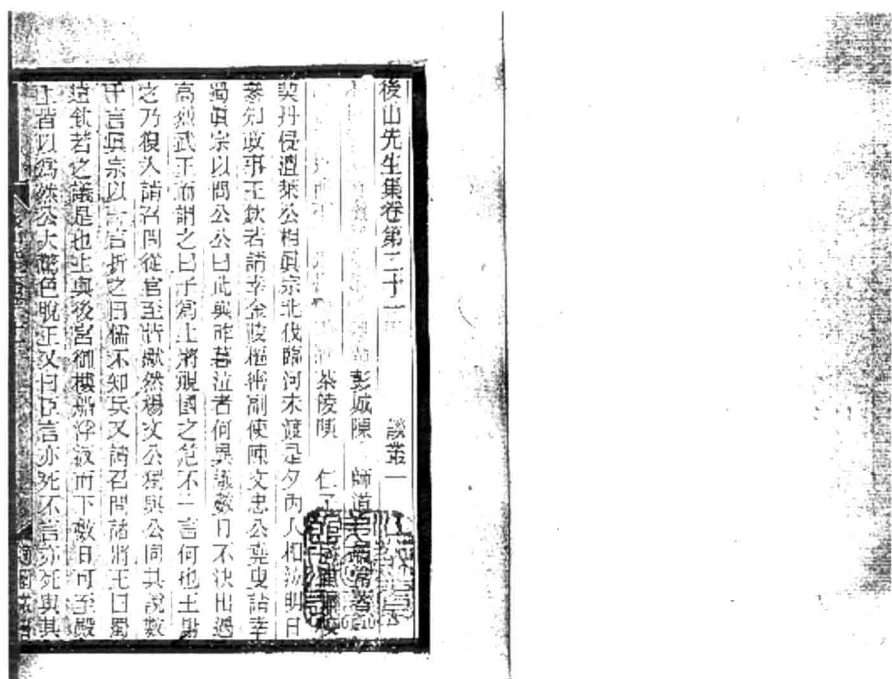 後山先生集卷第二十一 談叢一
彭城陳 師道
茶陵陳 仁子
契丹侵澶萊公相眞宗北伐臨河未渡是夕內人相泣明日
參知政事王欽若請幸金陵樞密副使陳文忠公堯叟請幸
蜀眞宗以問公公曰此與昨暮泣者何異議數日不決出遇
高烈武王而謂之曰子爲上將視國之危不一言何也王謝
之乃復入請召問從官至皆默然楊文公獨與公同其說數
千言眞宗以一言折之曰儒不知兵又請召問諸將王曰蜀
遠欽若之議是也上與後宮御樓船浮汴而下數日可至殿
上皆以爲然公大驚色脫王又曰臣言亦死不言亦死與其